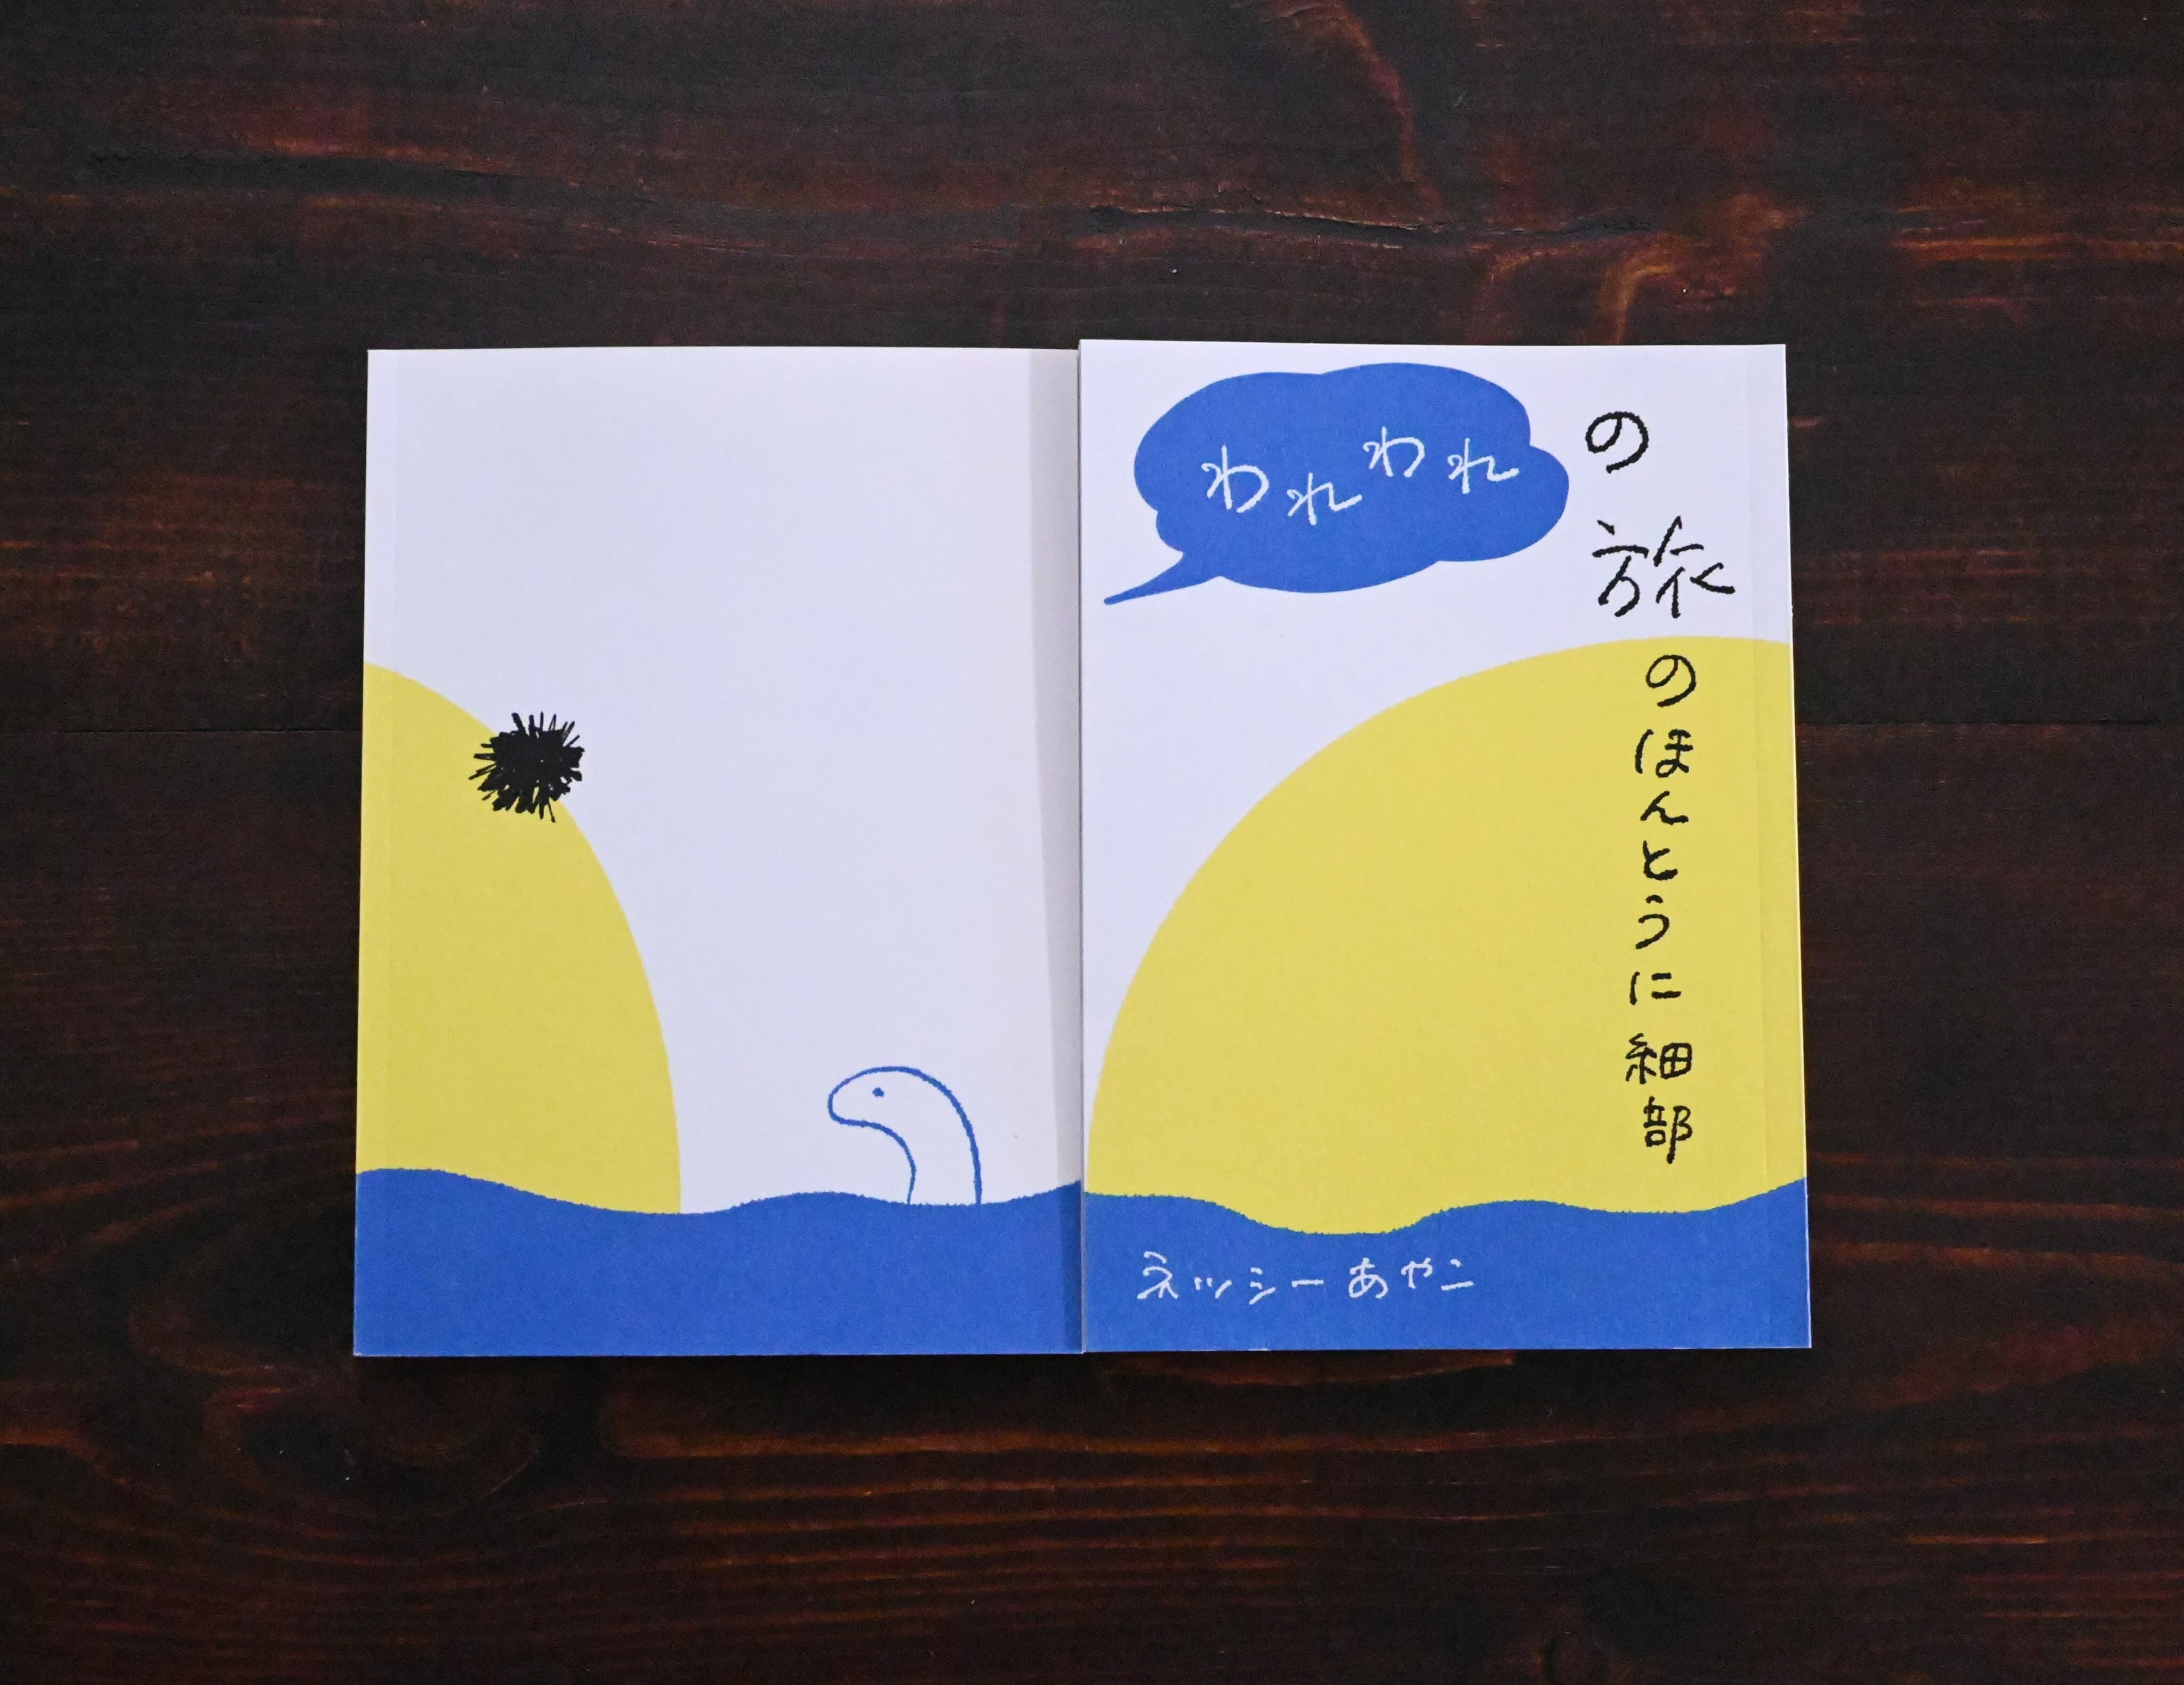 われわれ
の旅のほんとうに細部
ネッシーあやこ